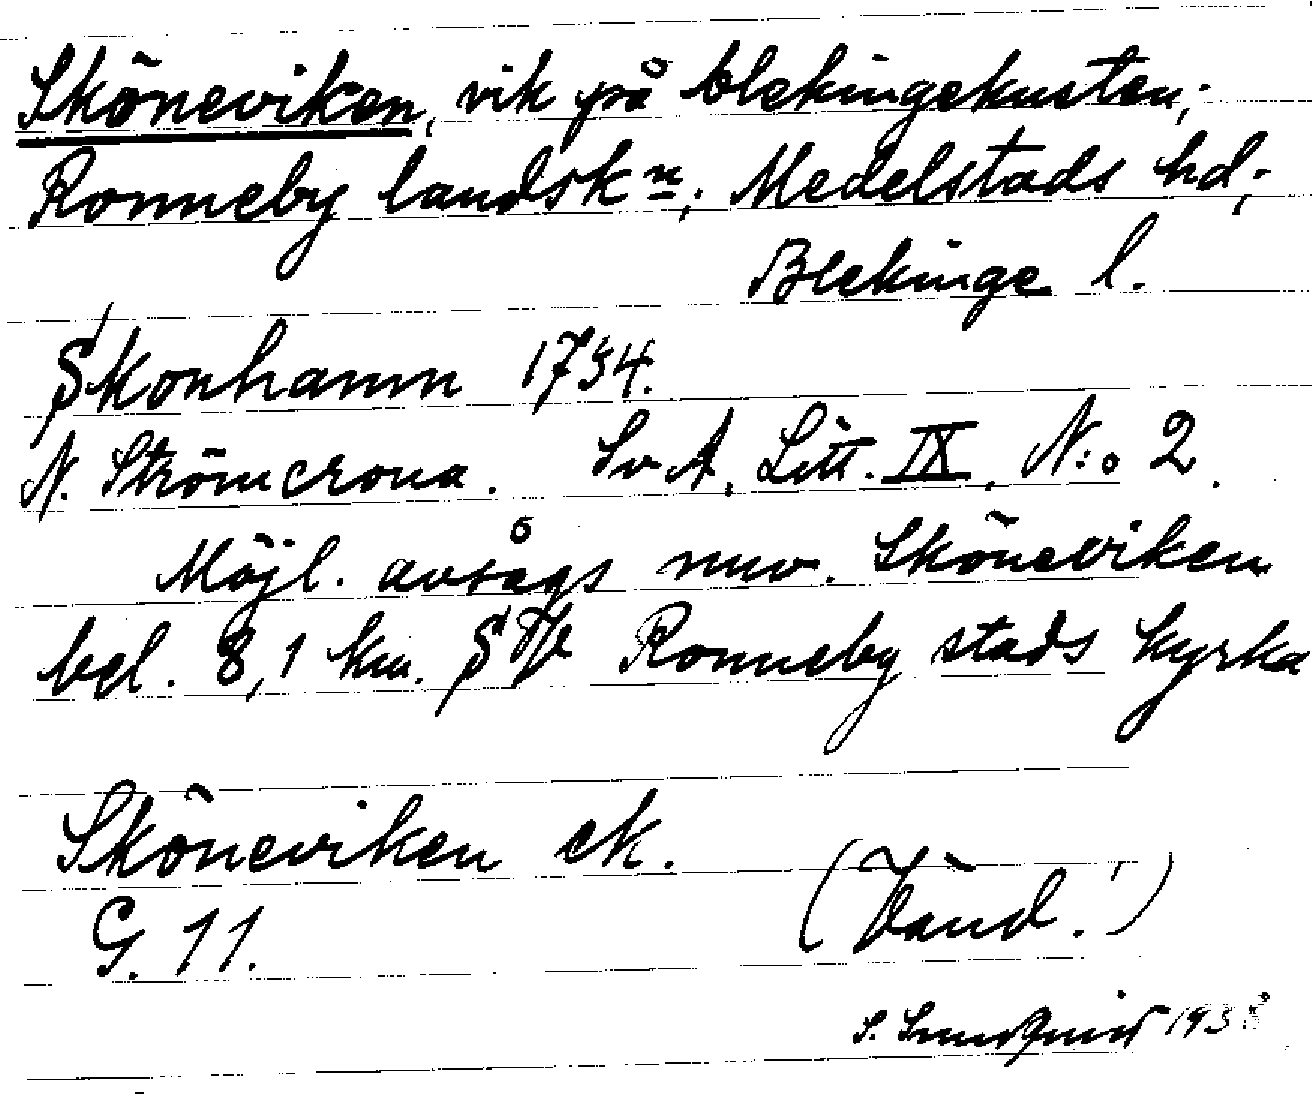 Sköneviken, vik på blekingekusten;
Ronneby landskn; Medelstads hd;
Blekinge l.
Skonhamn 1734.
N. Strömcrona. Sv A, Litt. IX, N:o 2.
Möjl. avsågs nuv. Sköneviken
bel. 8,1 km. S Ronneby stads kyrka
Sköneviken ek.
G. 11. (Vänd!)
S. 193